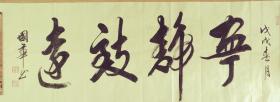 戊戌春月
寧靜致遠
國華书